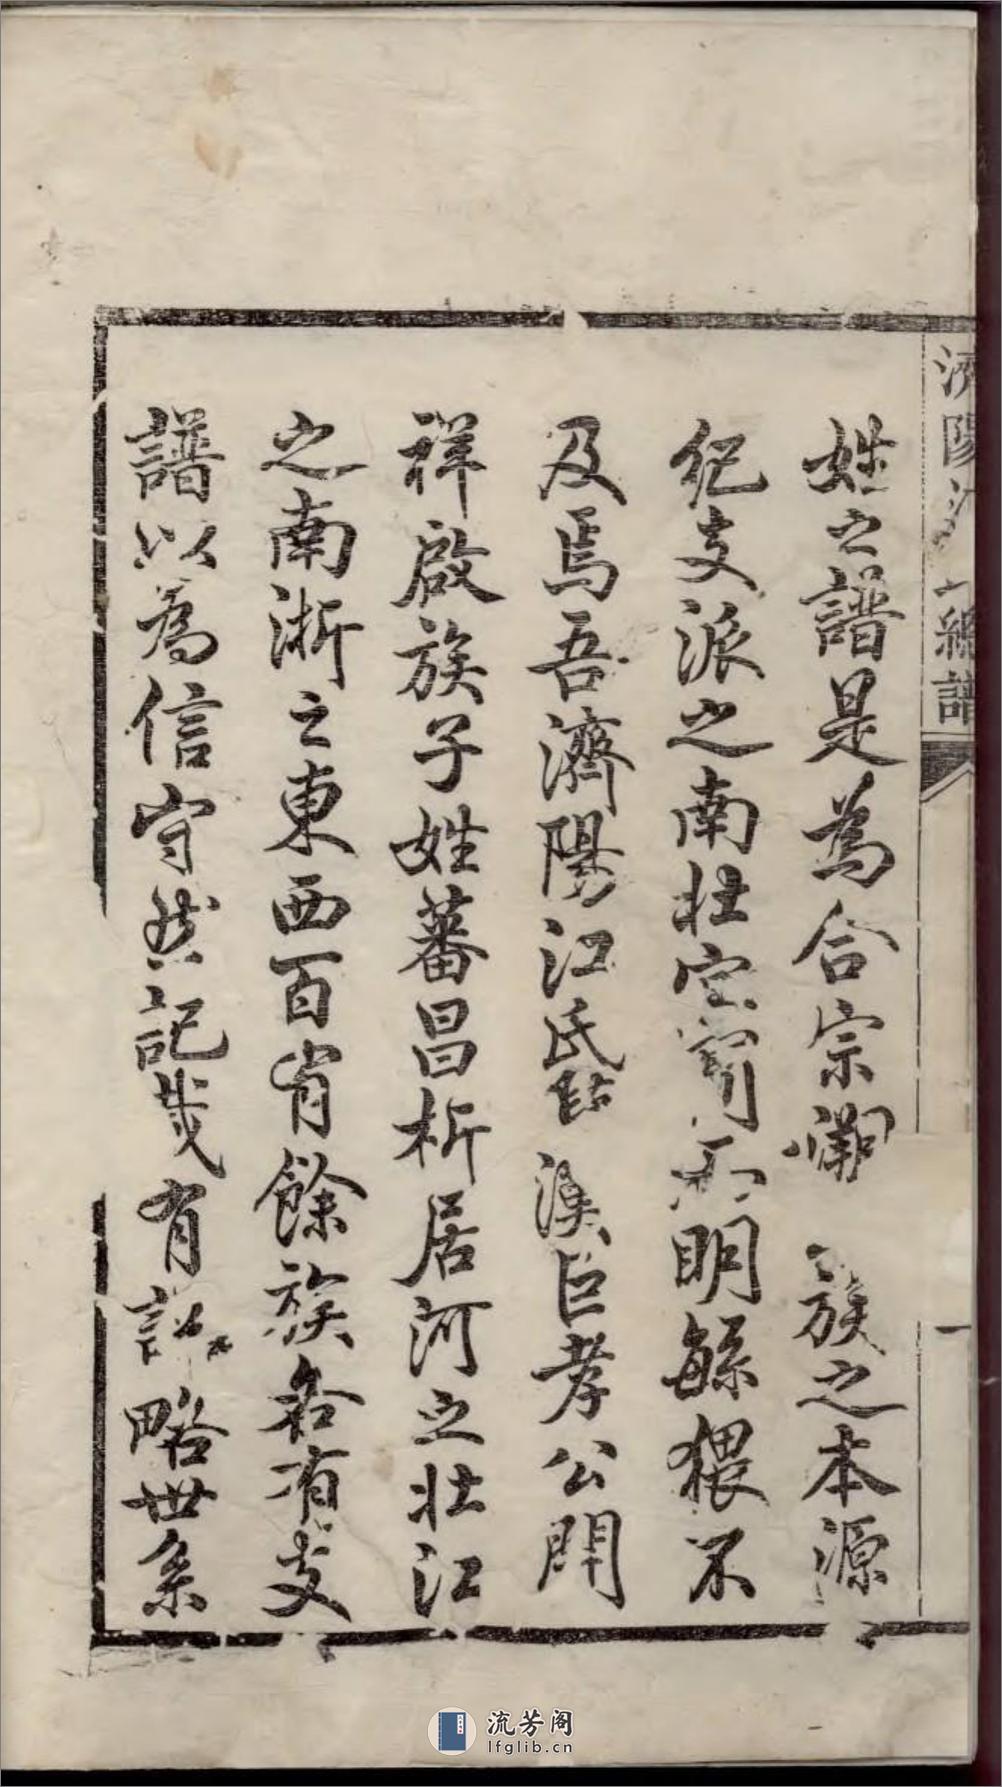 濟陽江
統譜
一
姓之譜是為合宗 族之本源
紀支派之南北 明繇猥不
及焉吾濟陽江氏 溪臣孝公開
祥啟族子姓蕃昌析居河之北江
之南浙之東西百有餘族各有支
譜以為信守然記載有 略世系
流芳阁
lfglib.cn